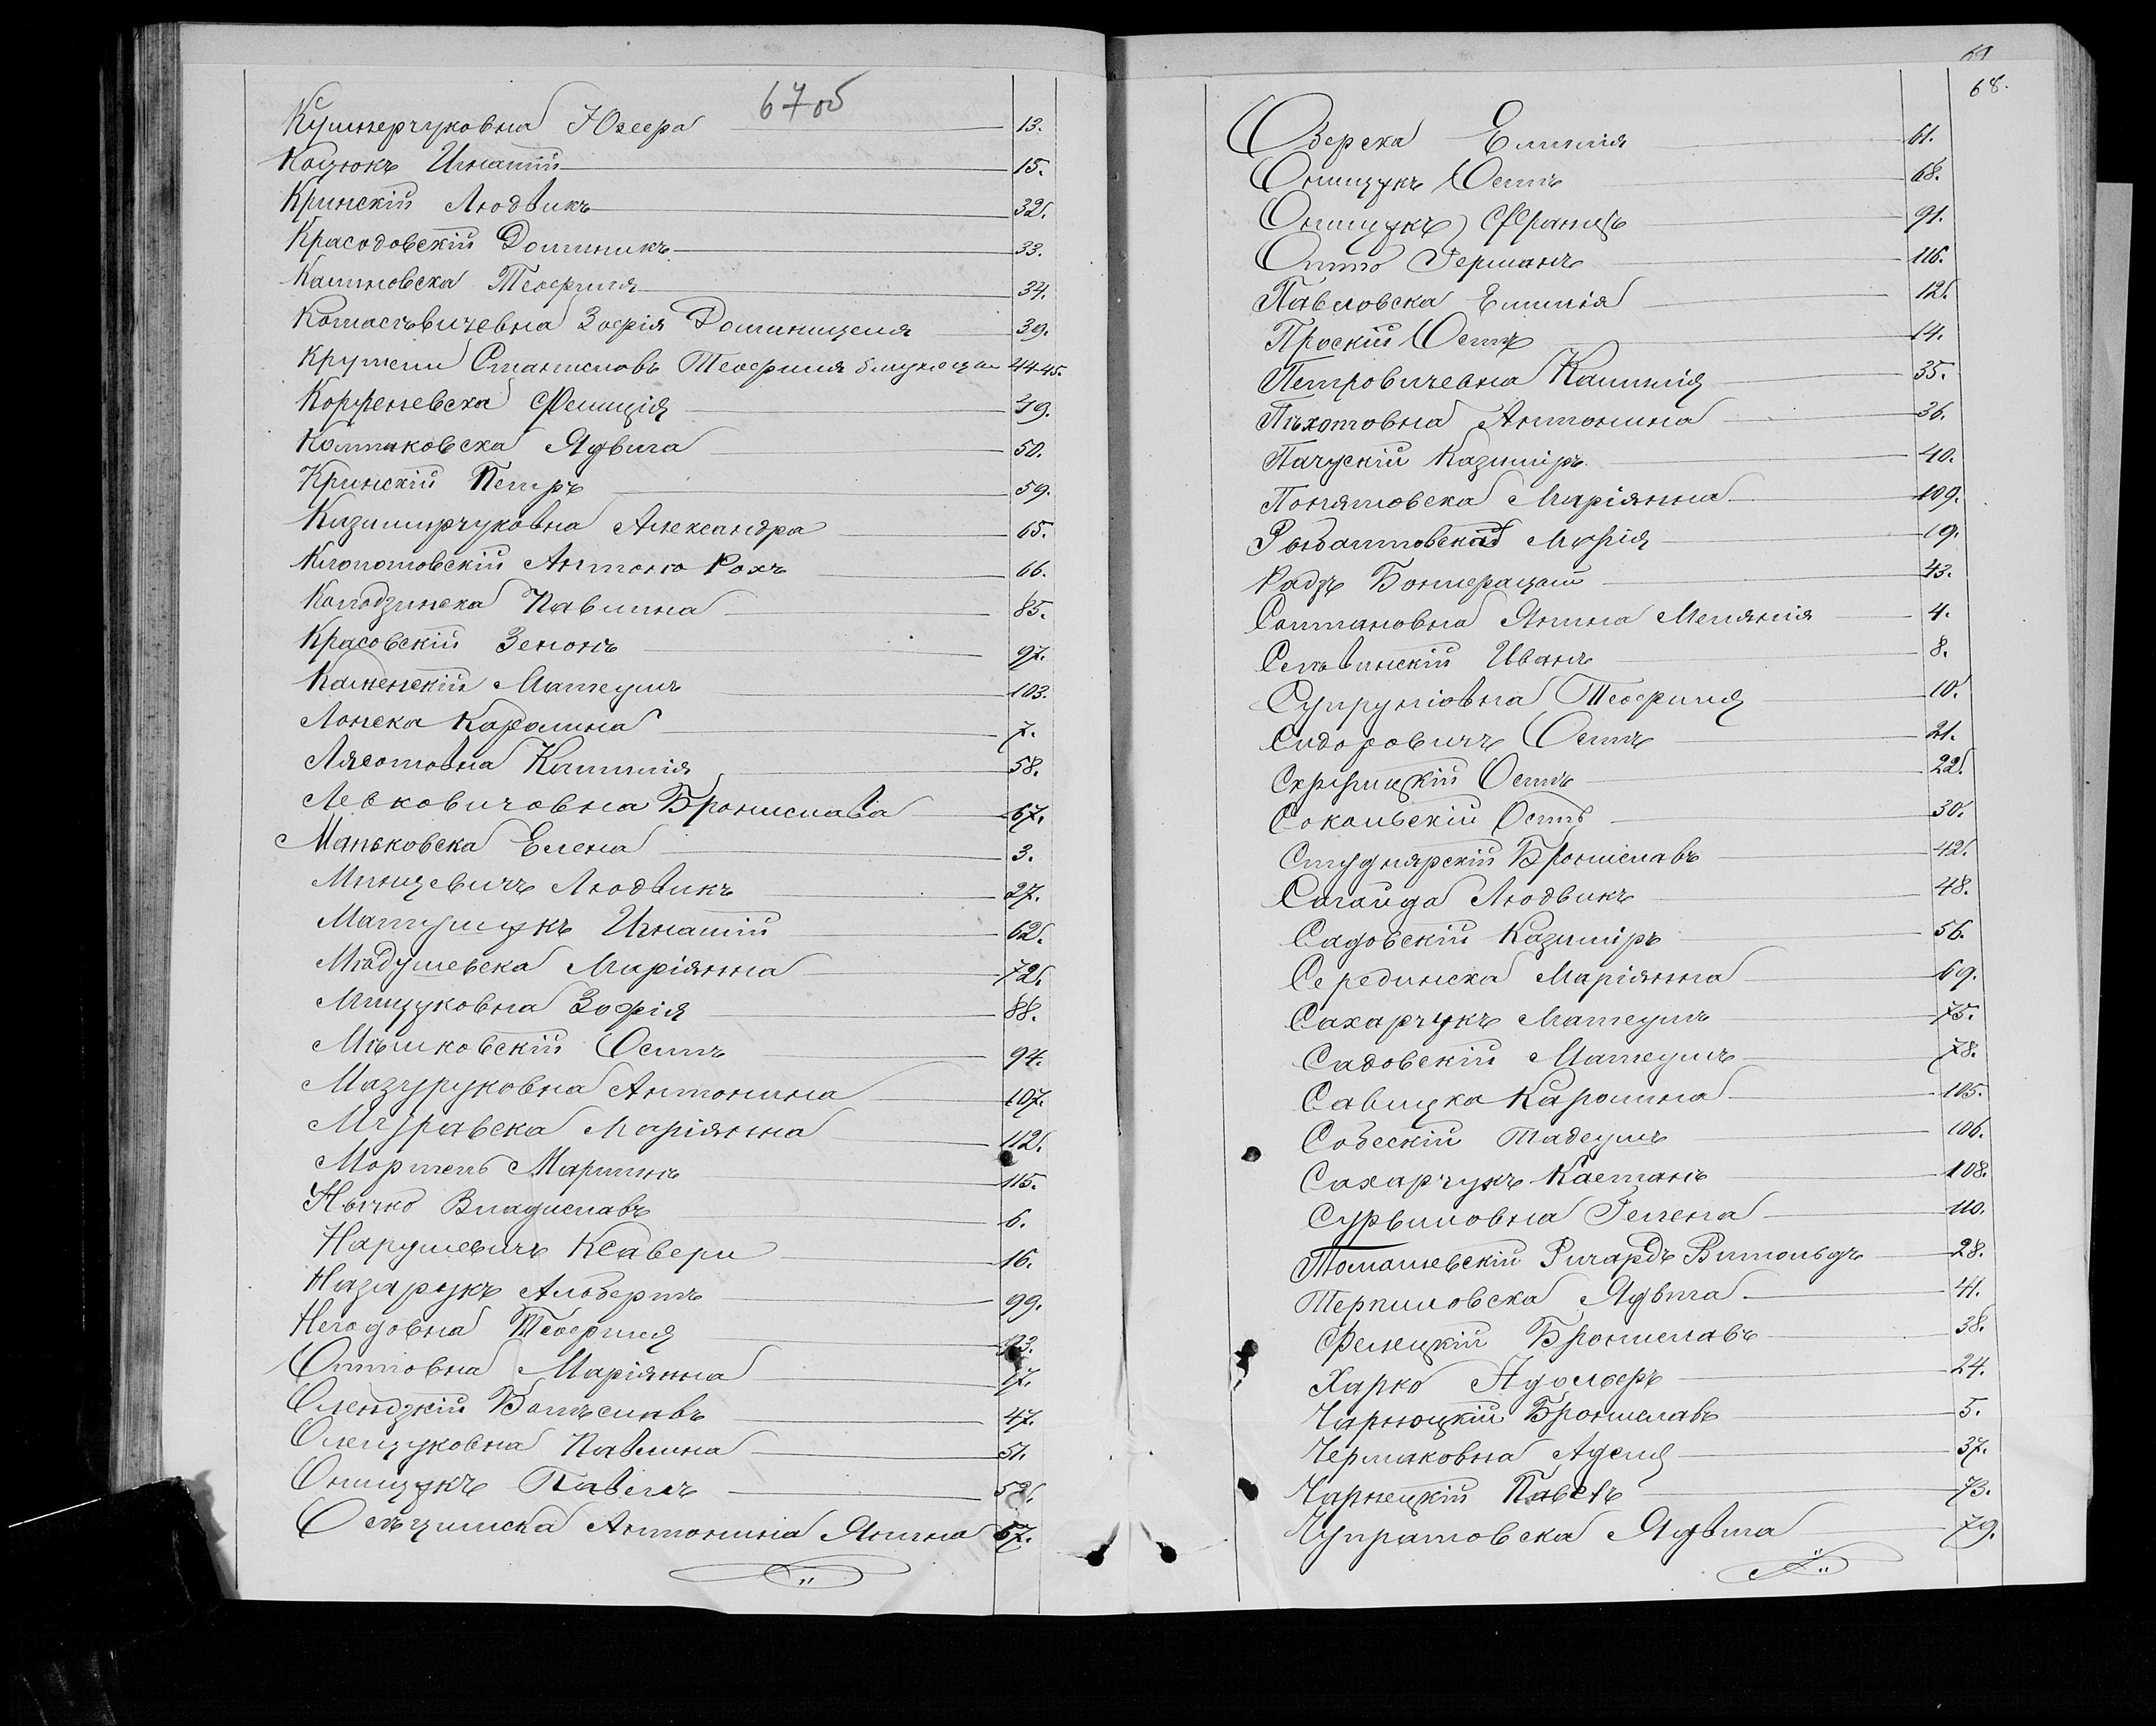 67об
Кушнерчуковна Юзефа 13.
Коцюкъ Игнатій 15.
Кринскій Людвикъ 32.
Красодовскій Доминикъ 33.
Калиновска Теофиля 34.
Комасъвичевна Зофія Доминицеля 39.
Крутели Станиславъ Теофиля близнецы 44-45.
Корженевска Фелиція 49.
Колтаковска Ядвига 50.
Кринскій Петръ 59.
Казимирчуковна Александра 65.
Клопотовскій Антоній Рохъ 66.
Колодзинска Павлина 85.
Красовскій Зенонъ 97.
Каменскій Матеушъ 103.
Лонска Каролина 7.
Лясотовна Камилія 58.
Левковичовна Брониславa 67.
Маньковска Елена 3.
Минцевичъ Людвикъ 27.
Матушукъ Игнатій 62.
Мladушевска Маріянна 72.
Мищуковна Зофія 88.
Мѣшковскій Осипъ 94.
Мазуруковна Антонина 107.
Муравска Маріянна 112.
Мортель Мартинъ 115.
Нычко Владиславъ 6.
Нарушевичъ Ксавери 16.
Назарукъ Альбертъ 99.
Негодовна Теофиля
Оттовна Маріянна 17.
Олендзкій Болѣславъ 47.
Олещуковна Павлина 51.
Онищукъ Павелъ 52.
Ольчинска Антонина Янина 57.
69
68.
Озерска Емилія 61.
Онищукъ Осипъ 68.
Онищукъ Францъ 91.
Отто Германъ 116.
Павловска Емилія 12.
Проскій Осипъ 14.
Петровичевна Камилія 35.
Пѣхотовна Антонина 36.
Пачускій Казиміръ 40.
Понятовска Маріянна 109.
Рыбалтовская Марія 19.
Радзъ Бонифацый 43.
Солтановна Янина Мелянія 4.
Сельвинскій Иванъ 8.
Супруновна Теофиля 10.
Сидоровичъ Осипъ 21.
Скржицкій Осипъ 22.
Сокольскій Осипъ 30.
Студнярскій Брониславъ 42.
Сагайда Людвикъ 48.
Садовскій Казиміръ 56.
Серединска Маріянна 69.
Сахарчукъ Матеушъ 75.
Садовскій Матеушъ 78.
Савицка Каролина 105.
Собескій Тадеушъ 106.
Сахарчукъ Каетанъ 108.
Сурьиловна Гелена 110.
Томашевскій Ричардъ Витольдъ 28.
Терпиловска Ядвига 41.
Феленцкій Брониславъ 38.
Харко Адольфъ 24.
Чарноцкій Брониславъ 5.
Чермаковна Аделя 37.
Чарнецкій Павелъ 73.
Чупратовска Ядвига 79.